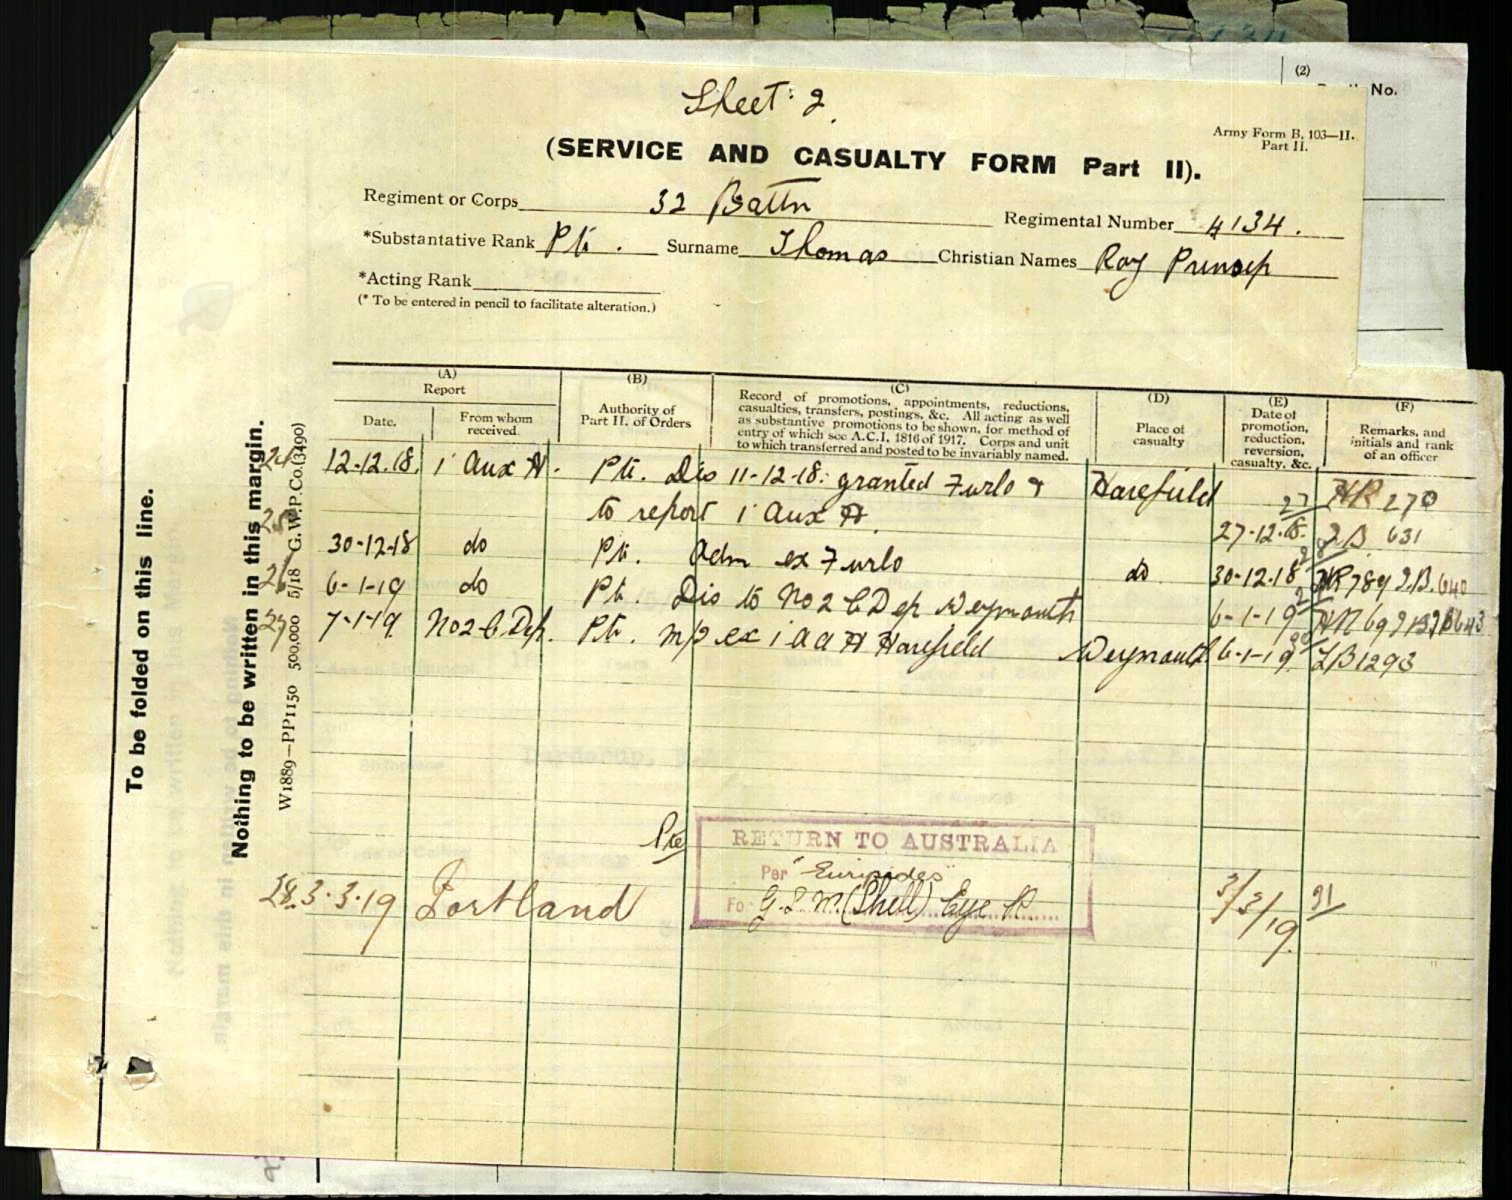 (2)
No.
Sheet 2.
Army Form B. 103—II.
Part II.
(SERVICE AND CASUALTY FORM Part II).
Regiment or Corps 32 Battn Regimental Number 4134.
*Substantative Rank Pte. Surname Thomas Christian Names Roy Prinsep
*Acting Rank
(* To be entered in pencil to facilitate alteration.)
To be folded on this line.
Nothing to be written in this margin.
W1889—PP1150 500,000 5/18 G.W.P.Co.(3490)
(A) (B) (C) (D) (E) (F)
Report
Date.
From whom received.
Authority of
Part II. of Orders
Record of promotions, appointments, reductions,
casualties, transfers, postings, &c. All acting as well
as substantive promotions to be shown, for method of
entry of which see A.C.I. 1816 of 1917. Corps and unit
to which transferred and posted to be invariably named.
Place of
casualty
Date of
promotion,
reduction,
reversion,
casualty, &c.
Remarks, and
initials and rank
of an officer
24 12-12.18. 1 Aux H. Pte. Dis 11-12-18: granted Furlo & Harefield 27 HR 270
25 to report 1 Aux H. 27-12-18. 631
30-12-18 do Pte. Adm ex Furlo do 30-12-18 HR 789 640
26 6-1-19 do Pte. Dis to No 2 C Dep Weymouth 6-1-19
27 7-1-19. No 2 C. Dep. Pte. m/o ex 1 A A H Harefield Weymouth 6-1-19 1293
Pte RETURN TO AUSTRALIA
Per "Euripides"
28. 3.3.19 Portland For G.S.W. (Shell) Eye R 3/3/19. 31